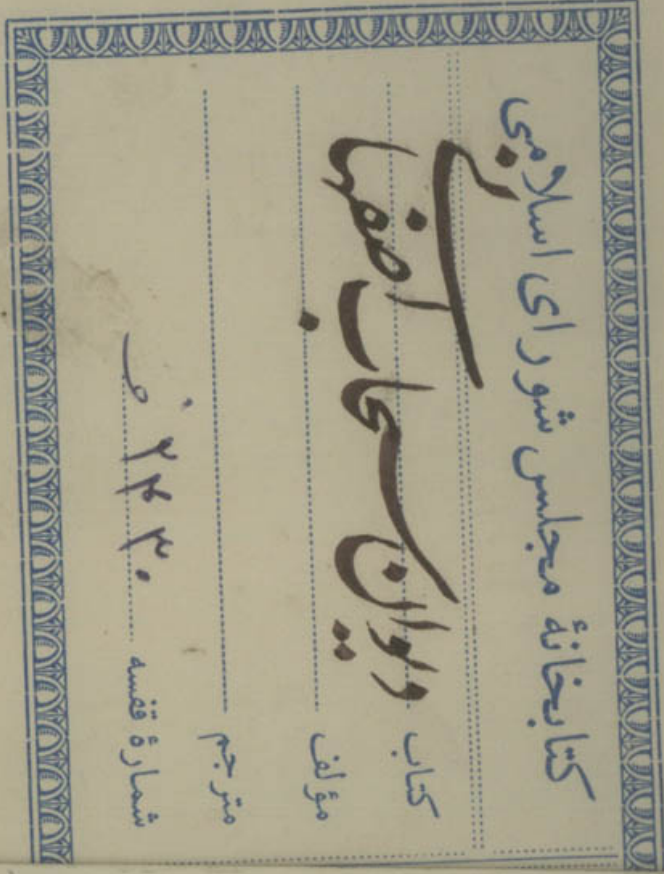 کتابخانهٔ مجلس شورای اسلامی
کتاب دیوان سحاب اصفهانی
مؤلف
مترجم
شمارهٔ قفسه ۲۴۳۰ ف